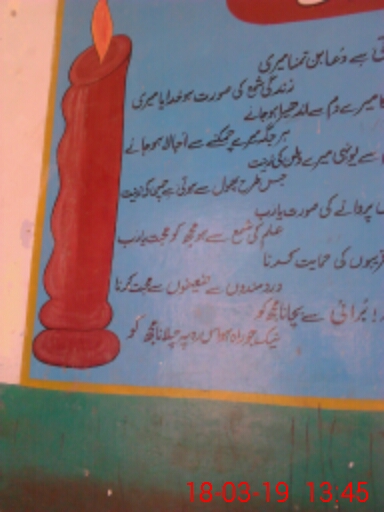 ہے دعا بن تمنا میری
زندگی شمع کی صورت ہو خدایا میری
میرے دم سے اندھیرا ہو جائے
ہر جگہ میرے چمکنے سے اجالا ہو جائے
سے یونہی میرے وطن کی زینت
جس طرح پھول سے ہوتی ہے چمن کی زینت
پروانے کی صورت یارب
علم کی شمع سے ہو مجھ کو محبت یارب
غریبوں کی حمایت کرنا
درد مندوں سے ضعیفوں سے محبت کرنا
برائی سے بچانا مجھ کو
نیک جو راہ ہو اس رہ پہ چلانا مجھ کو
18-03-19 13:45